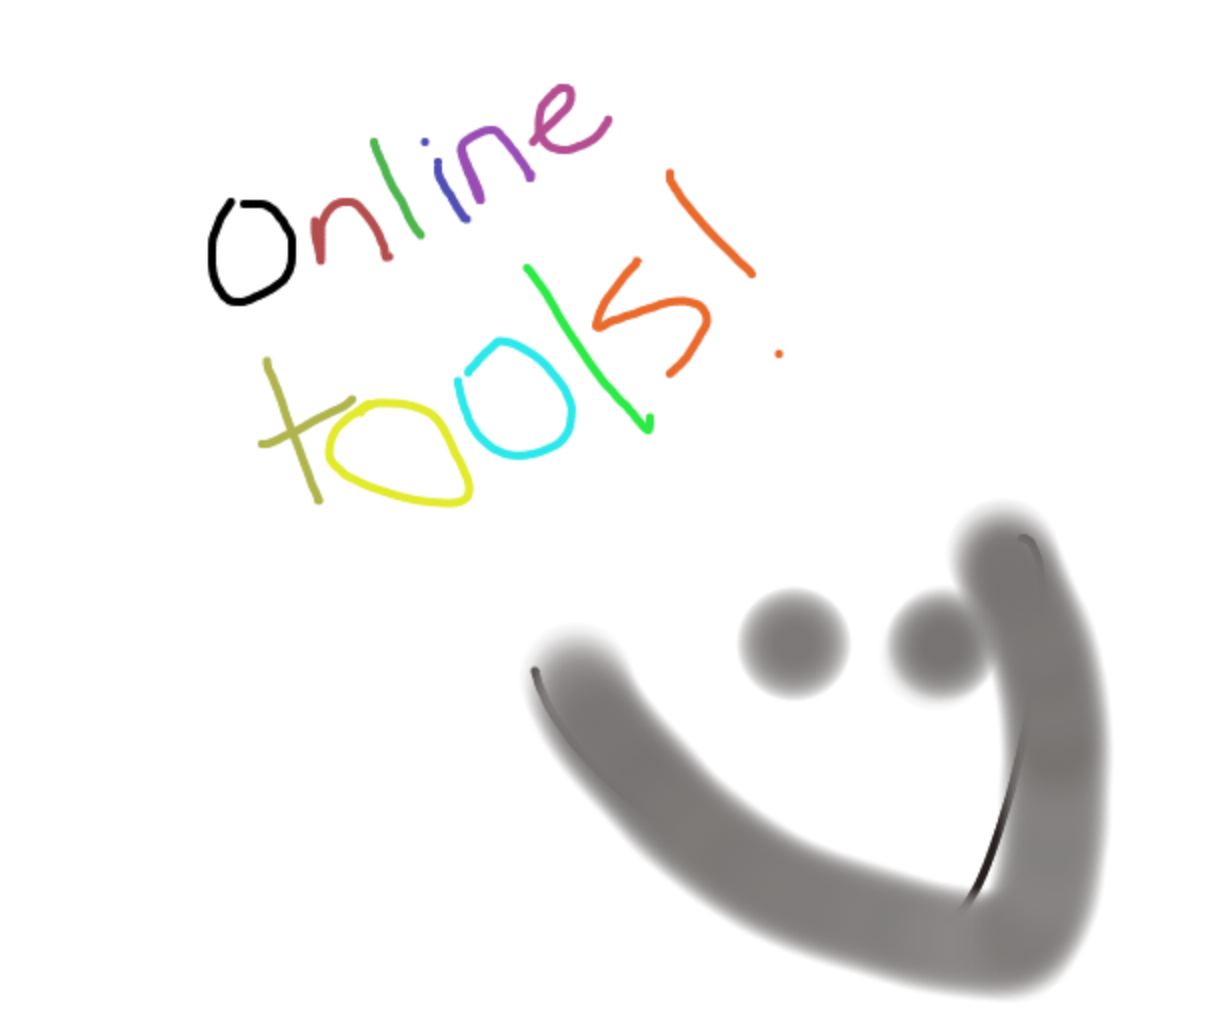 Online
tools!